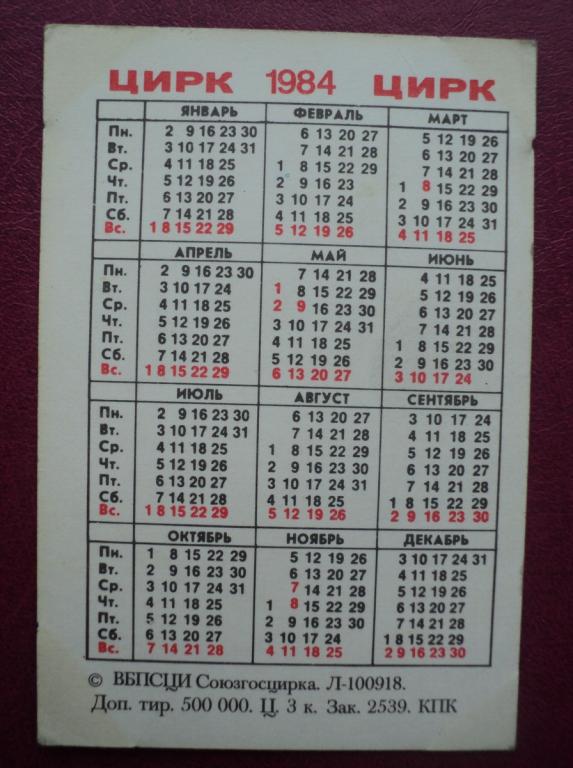 ЦИРК 1984 ЦИРК
ЯНВАРЬ ФЕВРАЛЬ МАРТ
Пн. 2 9 16 23 30 6 13 20 27 5 12 19 26
Вт. 3 10 17 24 31 7 14 21 28 6 13 20 27
Ср. 4 11 18 25 1 8 15 22 29 7 14 21 28
Чт. 5 12 19 26 2 9 16 23 1 8 15 22 29
Пт. 6 13 20 27 3 10 17 24 2 9 16 23 30
Сб. 7 14 21 28 4 11 18 25 3 10 17 24 31
Вс. 1 8 15 22 29 5 12 19 26 4 11 18 25
АПРЕЛЬ МАЙ ИЮНЬ
Пн. 2 9 16 23 30 7 14 21 28 4 11 18 25
Вт. 3 10 17 24 1 8 15 22 29 5 12 19 26
Ср. 4 11 18 25 2 9 16 23 30 6 13 20 27
Чт. 5 12 19 26 3 10 17 24 31 7 14 21 28
Пт. 6 13 20 27 4 11 18 25 1 8 15 22 29
Сб. 7 14 21 28 5 12 19 26 2 9 16 23 30
Вс. 1 8 15 22 29 6 13 20 27 3 10 17 24
ИЮЛЬ АВГУСТ СЕНТЯБРЬ
Пн. 2 9 16 23 30 6 13 20 27 3 10 17 24
Вт. 3 10 17 24 31 7 14 21 28 4 11 18 25
Ср. 4 11 18 25 1 8 15 22 29 5 12 19 26
Чт. 5 12 19 26 2 9 16 23 30 6 13 20 27
Пт. 6 13 20 27 3 10 17 24 31 7 14 21 28
Сб. 7 14 21 28 4 11 18 25 1 8 15 22 29
Вс. 1 8 15 22 29 5 12 19 26 2 9 16 23 30
ОКТЯБРЬ НОЯБРЬ ДЕКАБРЬ
Пн. 1 8 15 22 29 5 12 19 26 3 10 17 24 31
Вт. 2 9 16 23 30 6 13 20 27 4 11 18 25
Ср. 3 10 17 24 31 7 14 21 28 5 12 19 26
Чт. 4 11 18 25 1 8 15 22 29 6 13 20 27
Пт. 5 12 19 26 2 9 16 23 30 7 14 21 28
Сб. 6 13 20 27 3 10 17 24 1 8 15 22 29
Вс. 7 14 21 28 4 11 18 25 2 9 16 23 30
© ВБПСЦИ Союзгосцирка. Л-100918.
Доп. тир. 500 000. Ц. 3 к. Зак. 2539. КПК